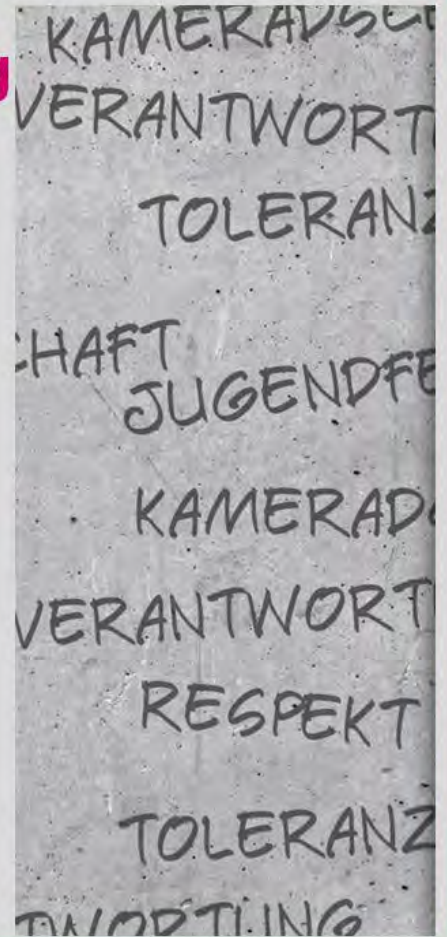 KAMERADSC
VERANTWORT
TOLERANZ
CHAFT
JUGENDFE
KAMERADS
VERANTWORT
RESPEKT
TOLERANZ
TWORTUNG